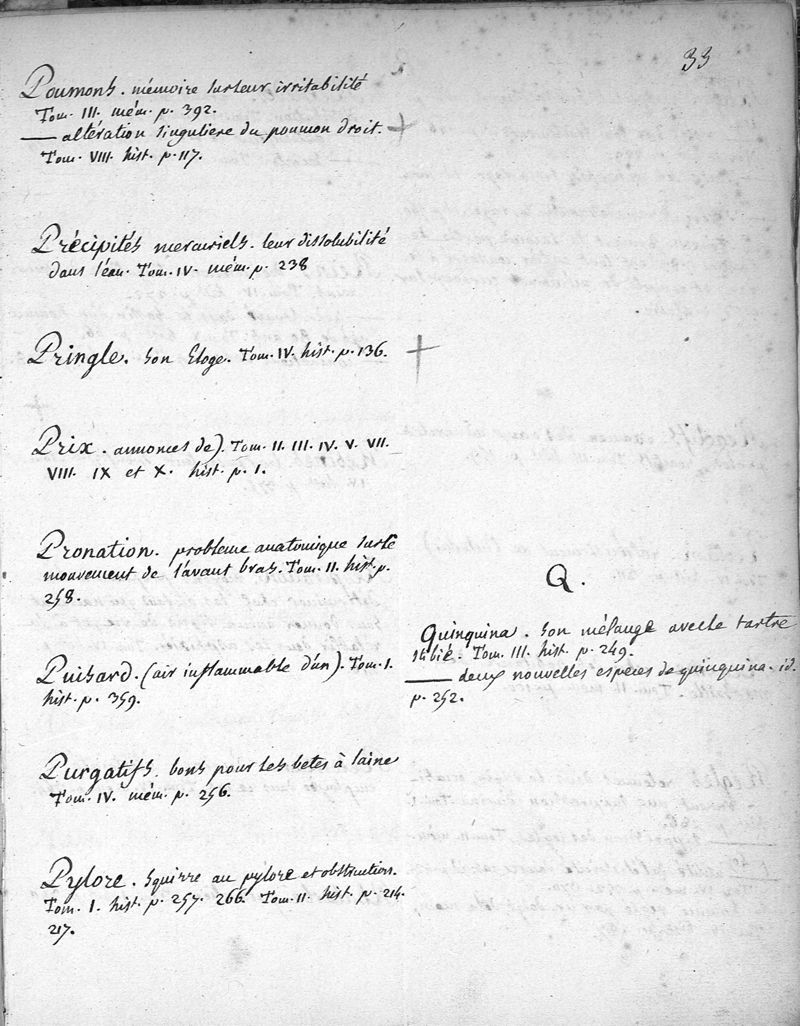 33
Poumons. mémoire sur leur irritabilité
Tom. III. mém. p. 392.
— altération singuliere du poumon droit.
Tom. VIII. hist. p. 117.
Précipités mercuriels. leur dissolubilité
dans l'éau. Tom. IV. mém. p. 238
Pringle. Son Eloge. Tom. IV. hist. p. 136.
Prix. annonces de). Tom. II. III. IV. V. VII.
VIII. IX et X. hist. p. 1.
Pronation. probleme anatomique sur le
mouvement de l'avant bras. Tom. II. hist. p.
258.
Puisard. (air inflammable d'un). Tom. I.
hist. p. 359.
Purgatifs. bons pour les betes à laine
Tom. IV. mém. p. 256.
Pylore. Squirre au pylore et obstruction.
Tom. I. hist. p. 257. 266. Tom. II. hist. p. 214.
217.
Q.
Quinquina. Son mélange avec le tartre
stibié. Tom. III. hist. p. 249.
— deux nouvelles espèces de quinquina. id.
p. 252.